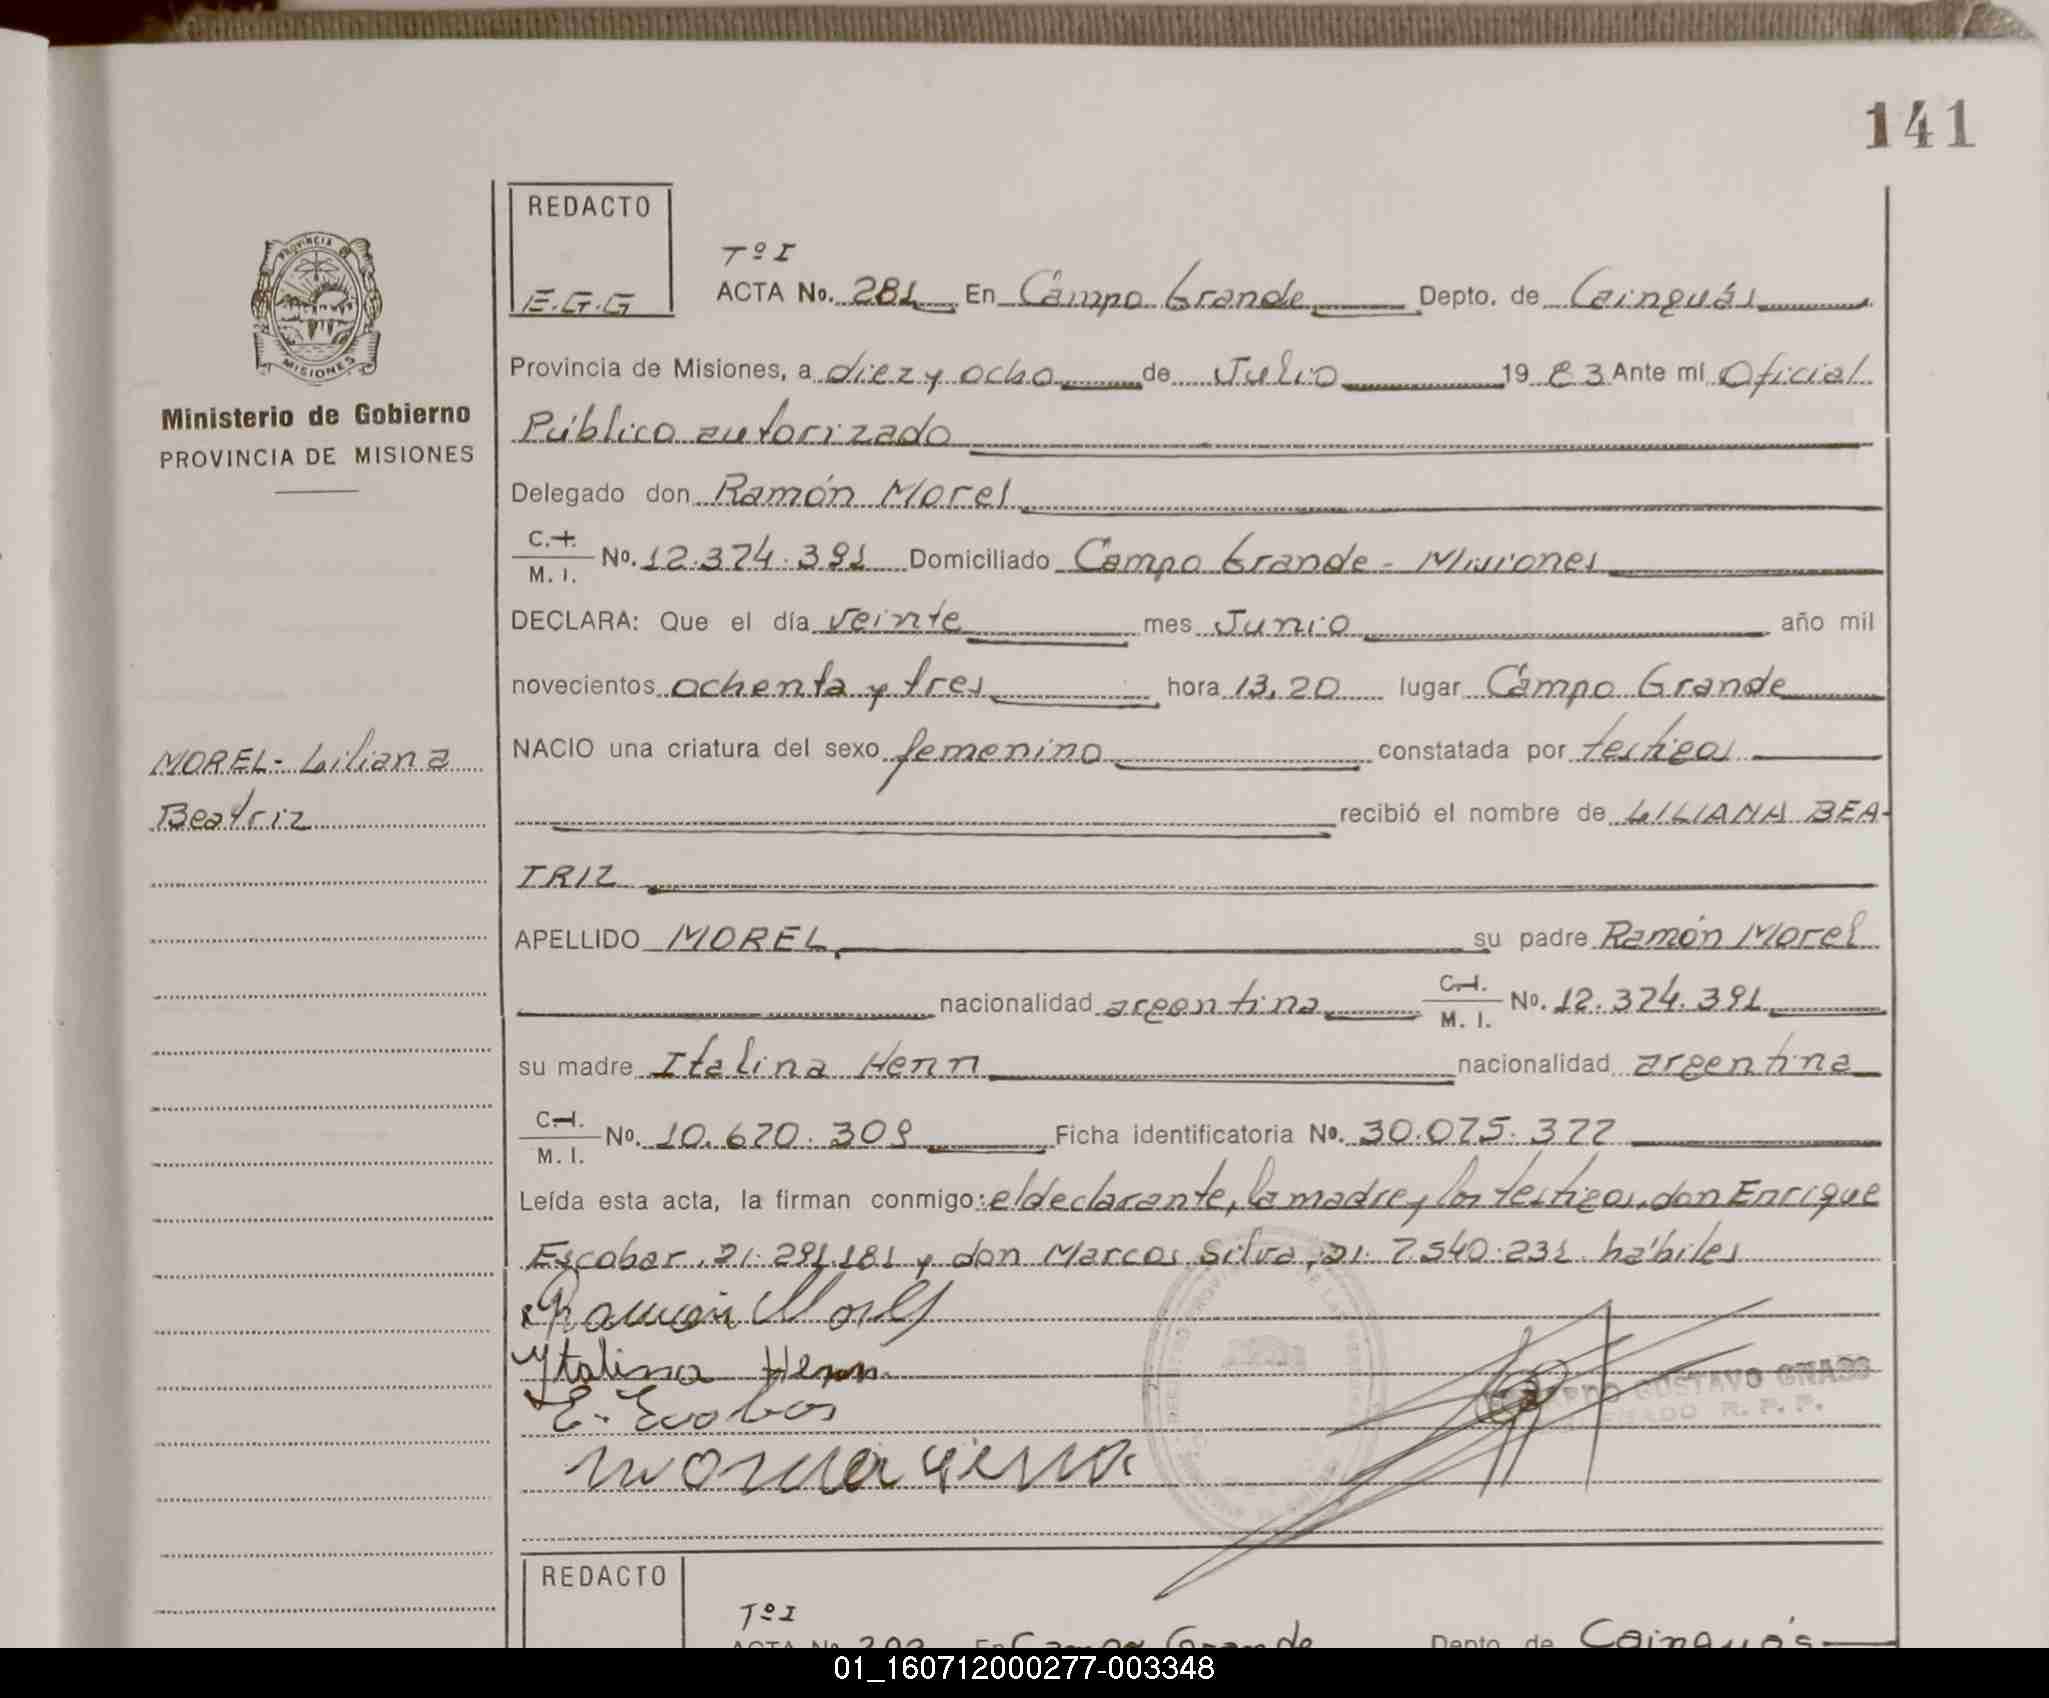 141
REDACTO
E.G.G
Tº I
ACTA No. 281 En Campo Grande Depto. de Cainguás
Provincia de Misiones, a diez y ocho de Julio 1983 Ante mí Oficial
Público autorizado
Delegado don Ramón Morel
C.I.
M. I. No. 12.374.391 Domiciliado Campo Grande - Misiones
DECLARA: Que el día veinte mes Junio año mil
novecientos ochenta y tres hora 13,20 lugar Campo Grande
NACIO una criatura del sexo femenino constatada por testigos
recibió el nombre de LILIANA BEA-
TRIZ
APELLIDO MOREL su padre Ramón Morel
nacionalidad argentina C.I.
M. I. No. 12.374.391
su madre Italina Henn nacionalidad argentina
C.I.
M. I. No. 10.670.309 Ficha identificatoria No. 30.075.377
Leída esta acta, la firman conmigo: el declarante, la madre y los testigos, don Enrique
Escobar, 21.291.181 y don Marcos Silva, 7.540.231 hábiles
Ramón Morel
Ytalina Henn
E. Escobar
GUSTAVO GNASS
R. P. P.
PROVINCIA
MISIONES
Ministerio de Gobierno
PROVINCIA DE MISIONES
MOREL - Liliana
Beatriz
REDACTO
Tº I
ACTA No. En Campo Grande Depto. de Cainguás
01_160712000277-003348